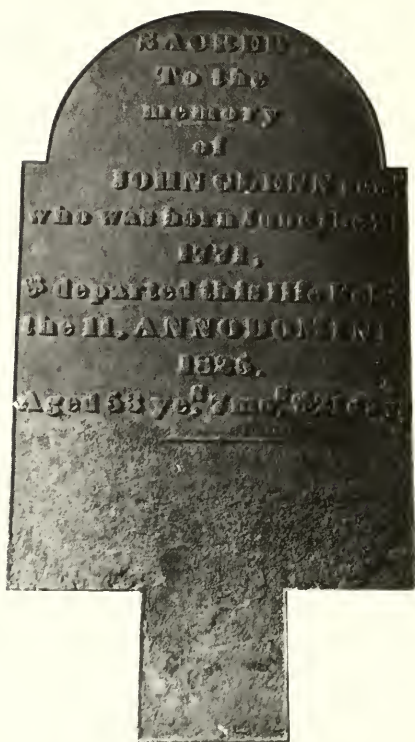 SACRED
To the
memory
of
JOHN GLENN
who was born June
1771,
& departed this life Feb
the 11, ANNO DOMINI
1825.
Aged 53 ye,s 7 mo,s & 21 day